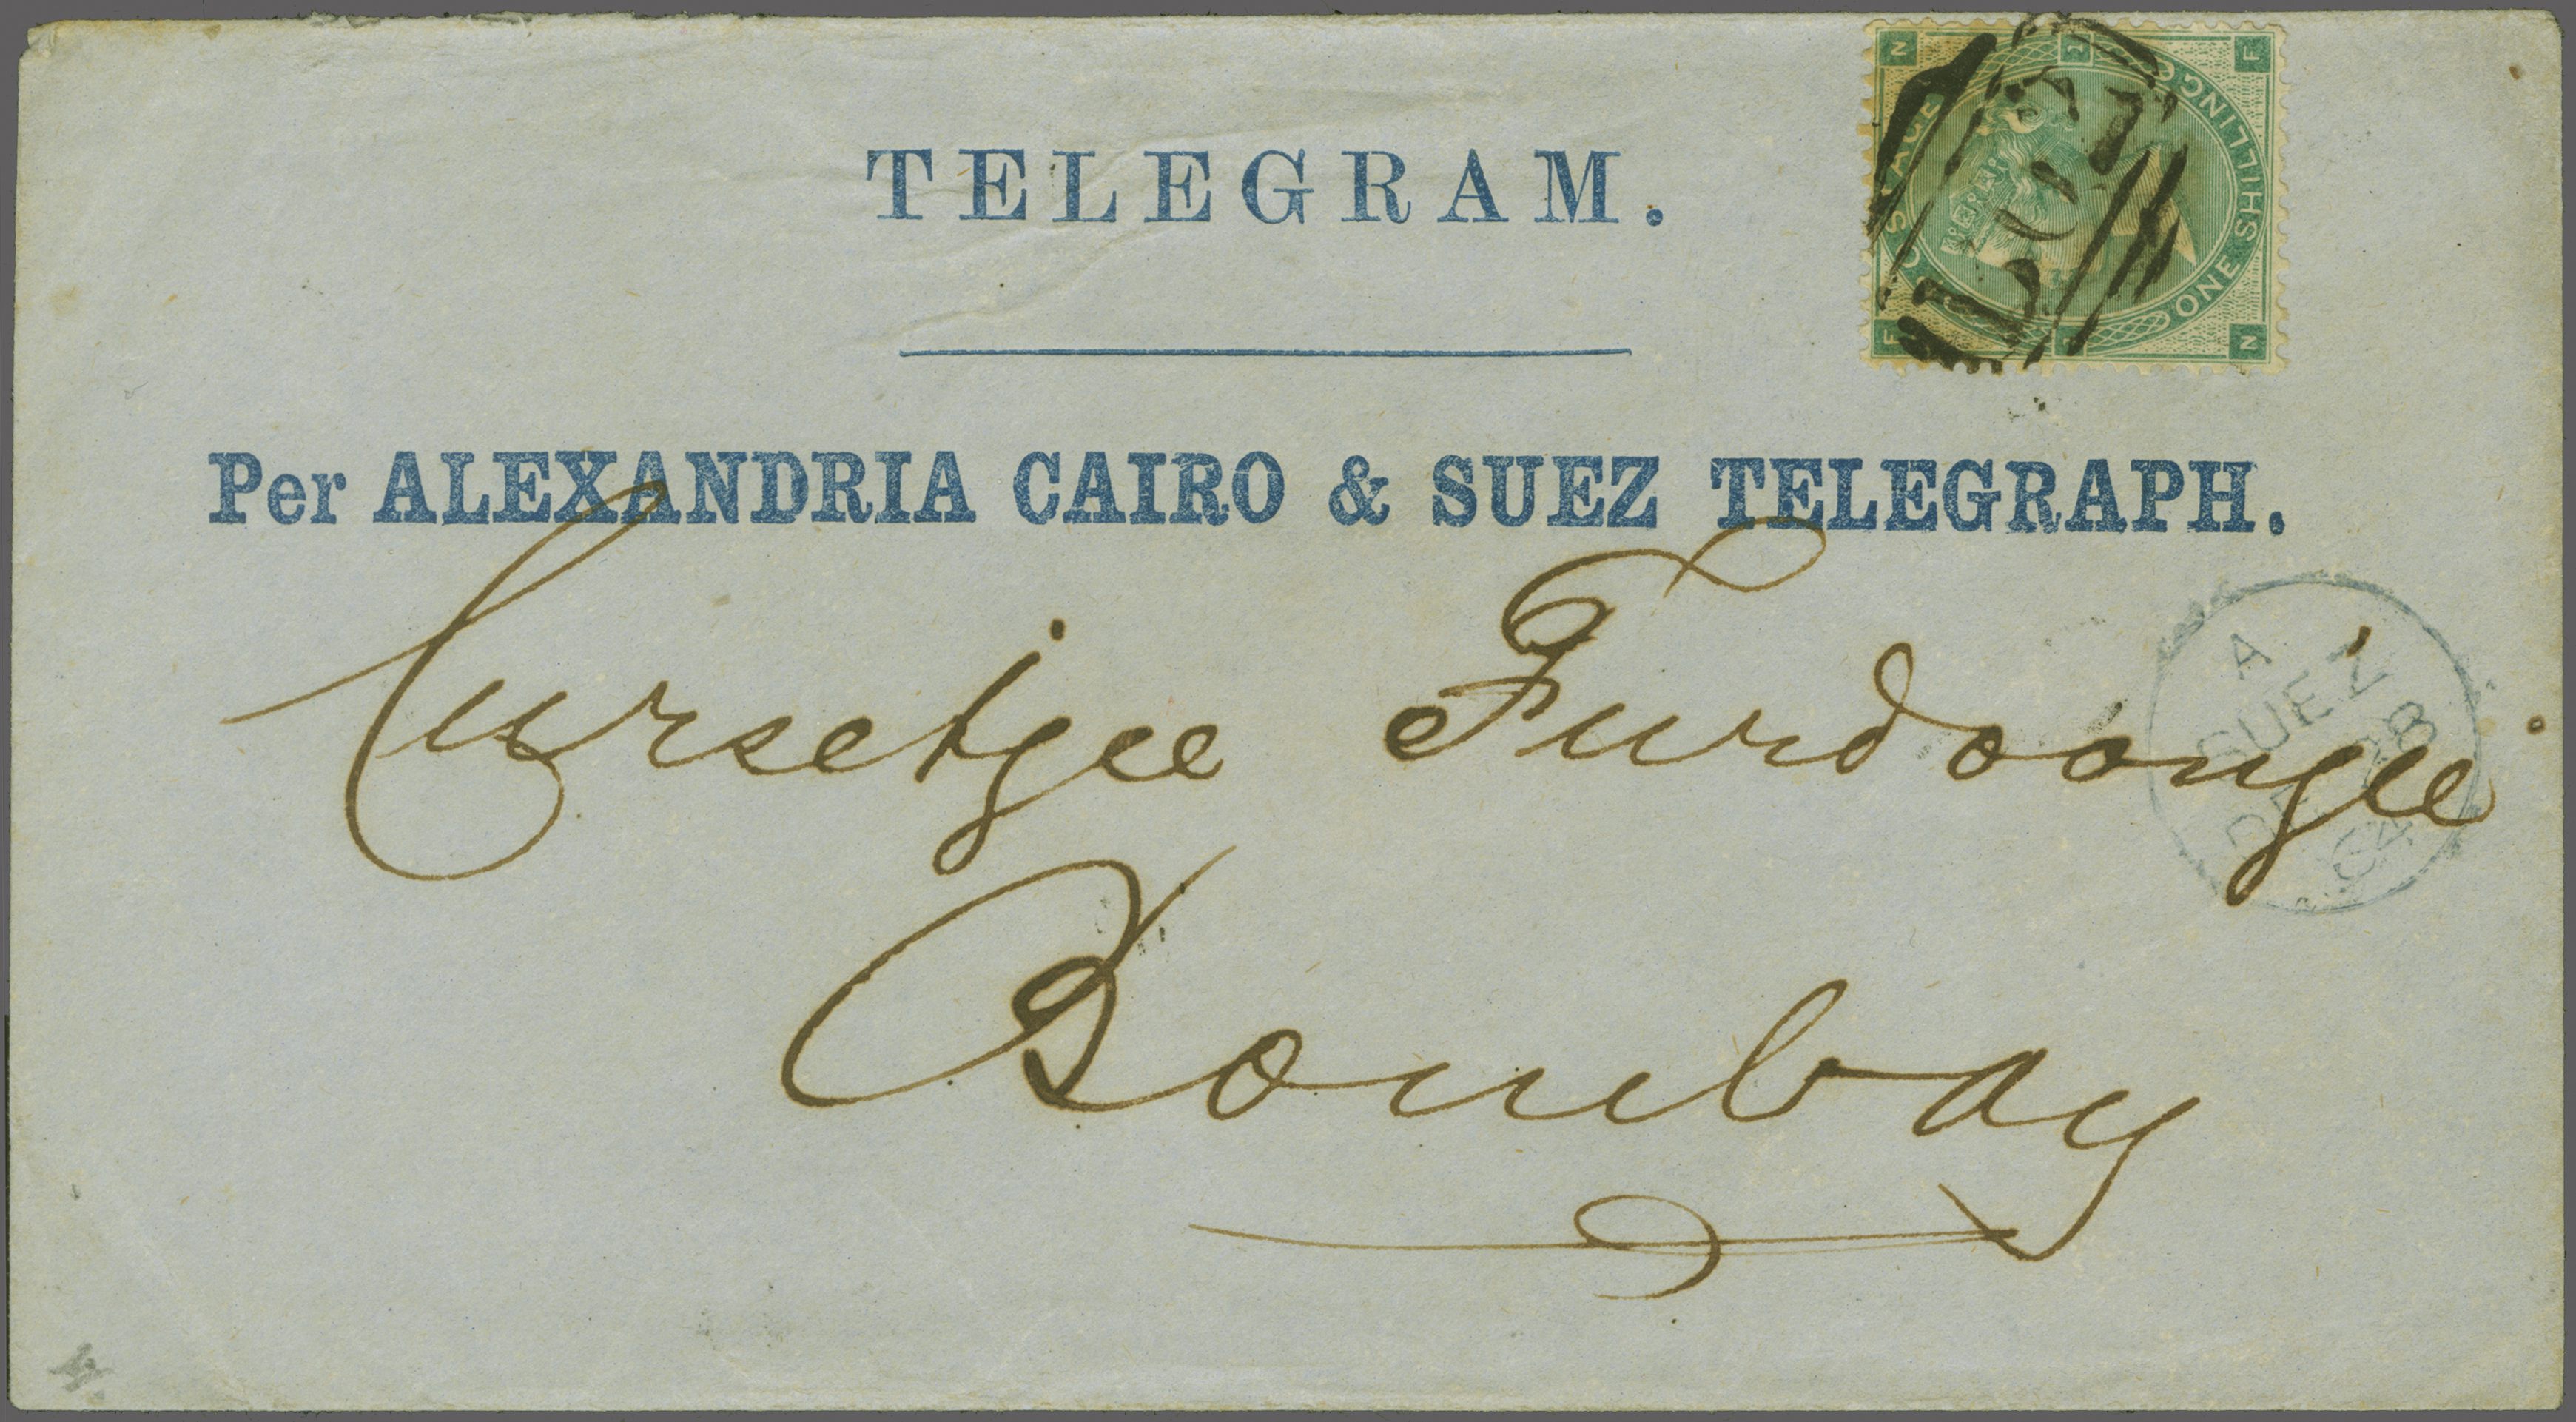 TELEGRAM.
N F
POSTAGE ONE SHILLING
F N
B02
Per ALEXANDRIA CAIRO & SUEZ TELEGRAPH.
Cursetjee Furdoonjee
A
SUEZ
DE 28
64
Bombay